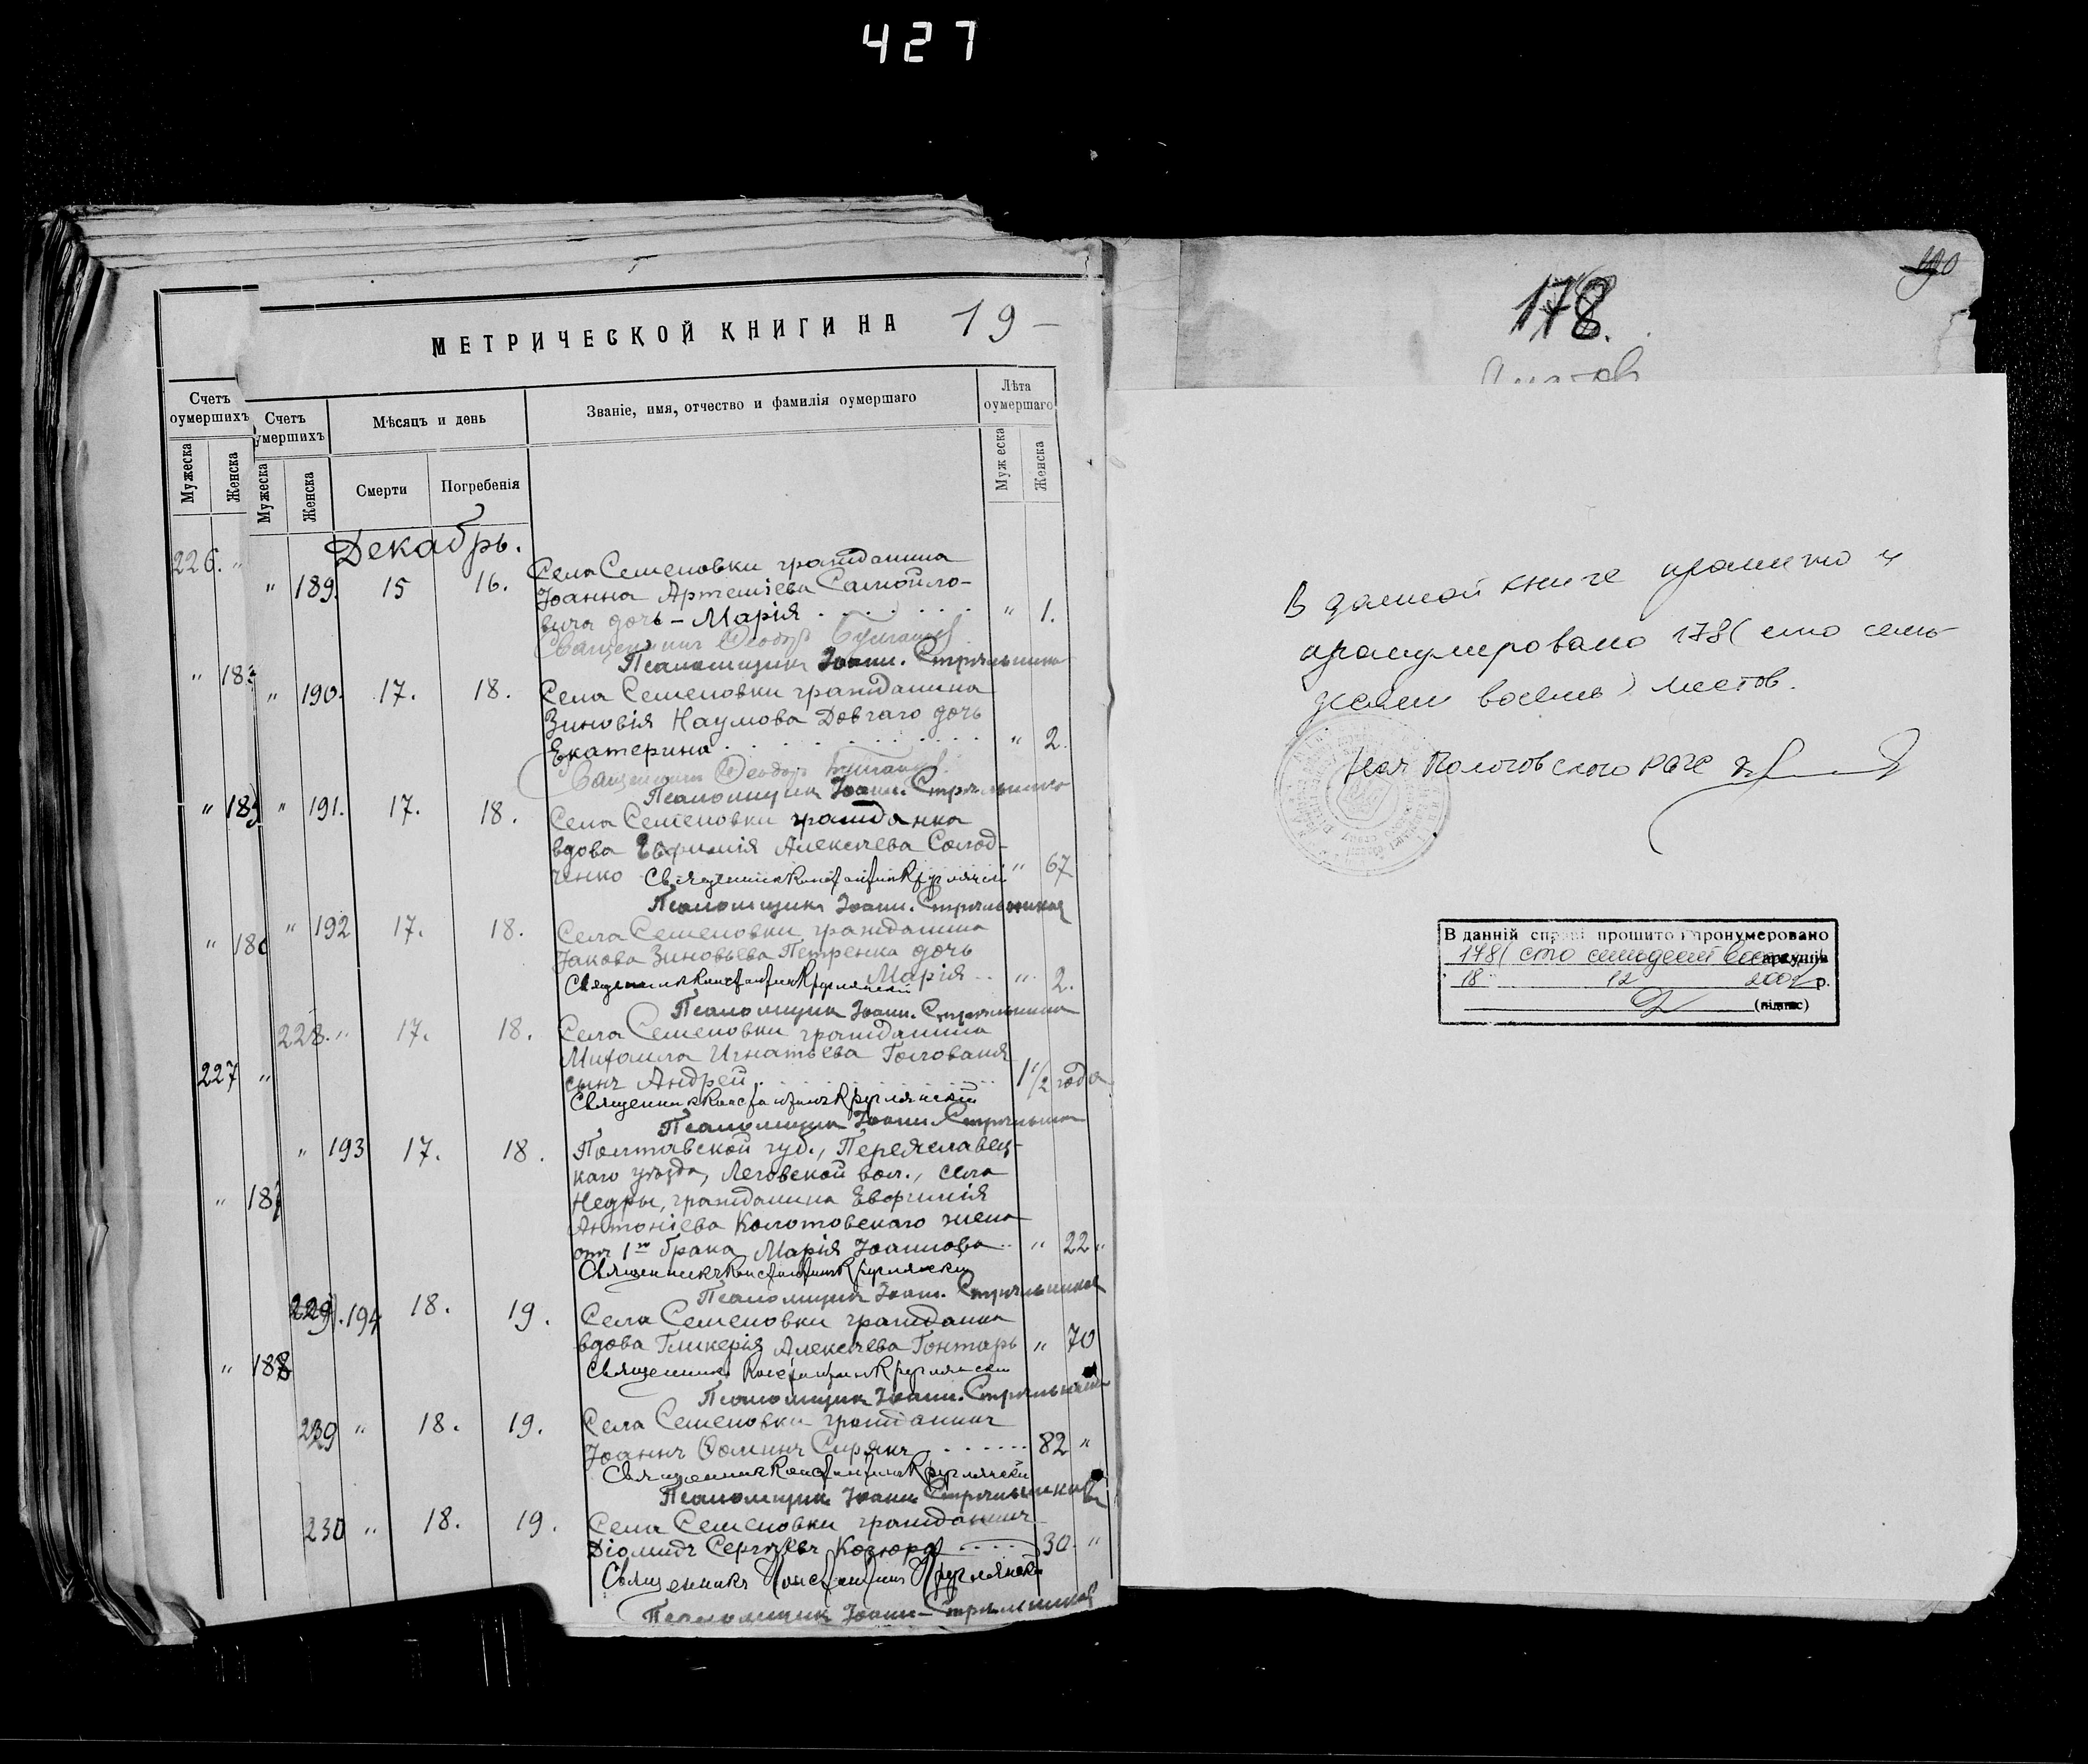 427
МЕТРИЧЕСКОЙ КНИГИ НА 19 –
Счетъ оумершихъ
Мужеска Женска
226. "
" 18
" 18
" 18
227 "
" 187
" 188
Счетъ умершихъ
Мѣсяцъ и день
Званіе, имя, отчество и фамилія оумершаго
Лѣта оумершаго
Мужеска Женска
Смерти Погребенія
Муж еска Женска
Декабрь.
" 189. 15 16. Села Семеновки гражданина
Іоанна Артеміева Самойло-
вича дочь – Марія . . . . . . " 1.
Священникъ Ѳеодоръ
Псаломщикъ Іоанн. Стрѣльников
" 190. 17. 18. Села Семеновки гражданина
Зиновія Наумова Довгаго дочь
Екатерина . . . . . . . . . " 2.
Священникъ Ѳеодоръ
Псаломщикъ Іоанн. Стрѣльников
" 191. 17. 18. Села Семеновки гражданка
вдова Евфимія Алексѣева Солод-
ченко Священникъ Константинъ Круглянскій " 67
Псаломщикъ Іоанн. Стрѣльников
" 192 17. 18. Села Семеновки гражданина
Іакова Зиновьева Петренка дочь
Марія .. " 2.
Священникъ Константинъ Круглянскій
Псаломщикъ Іоанн. Стрѣльников
228. " 17. 18. Села Семеновки гражданина
Михаила Игнатьева Голованя
сынъ Андрей . . . . . . . 1 1/2 года
Священникъ Константинъ Круглянскій
Псаломщикъ Іоанн. Стрѣльников
" 193 17. 18. Полтавской губ., Переяславец-
каго уѣзда, Леговской вол., села
Недры, гражданина Евфимія
Антоніева Колотовскаго жена
отъ 1го брака Марія Іоаннова .. " 22 "
Священникъ Константинъ Круглянскій
Псаломщикъ Іоанн. Стрѣльников
229. 194 18. 19. Села Семеновки гражданка
вдова Гликерія Алексѣева Гонтарь " 70
Священникъ Константинъ Круглянскій
Псаломщикъ Іоанн. Стрѣльников
239 " 18. 19. Села Семеновки гражданинъ
Іоаннъ Ѳоминъ Сирякъ . . . . . . 82 "
Священникъ Константинъ Круглянскій
Псаломщикъ Іоанн. Стрѣльников
230 " 18. 19. Села Семеновки гражданинъ
Діомидъ Сергѣевъ Козюра . . . . 30. "
Священникъ Константинъ Круглянскій
Псаломщикъ Іоанн. Стрѣльников
190
178.
Листов
В данной книге прошито и
пронумеровано 178 ( сто семь-
десят восемь ) листов.
Нач Пологовского РАГС
В данній справі прошито і пронумеровано
178 ( сто семдесят вісім ) аркушів
18 12 2002 р.
(підпис)